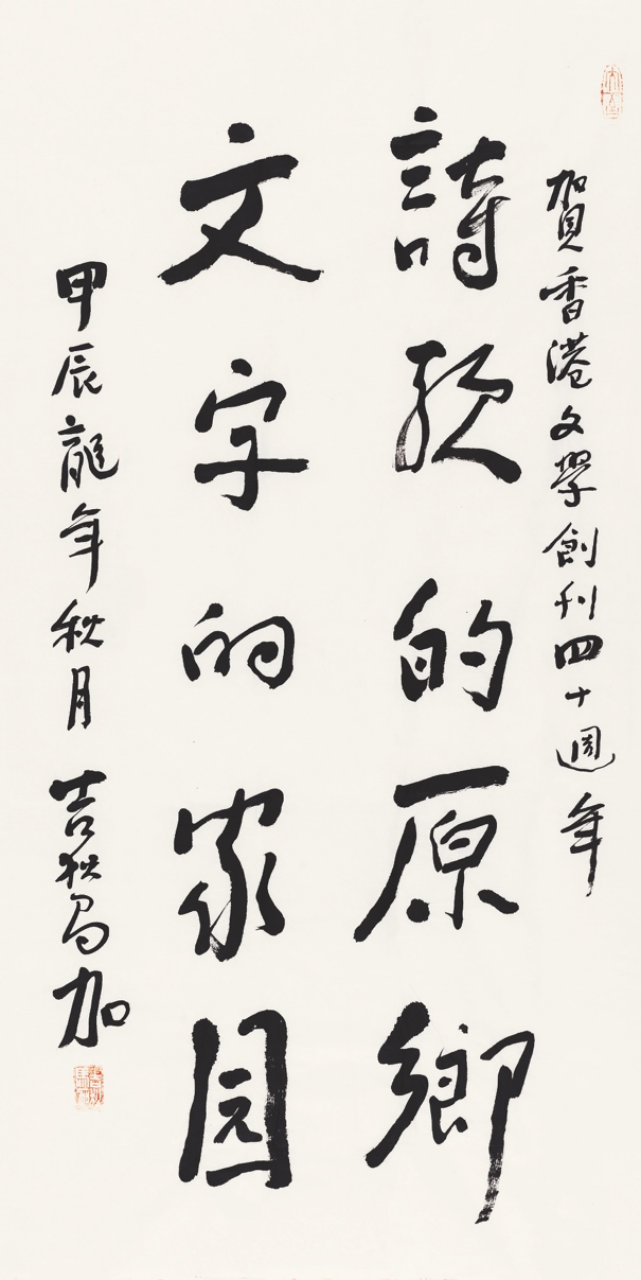 賀香港文學創刊四十週年
詩歌的原鄉
文字的家园
甲辰龍年秋月 吉狄馬加